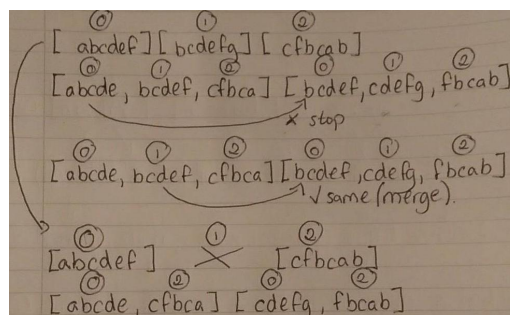 ⓪ ① ②
[ abcdef] [ bcdefg] [ cfbcab]
⓪ ① ② ⓪ ① ②
[abcde, bcdef, cfbca] [bcdef, cdefg, fbcab]
× stop
⓪ ① ② ⓪ ① ②
[abcde, bcdef, cfbca] [bcdef, cdefg, fbcab]
√ same (merge).
⓪ ① ②
[abcdef ] × [cfbcab]
⓪ ② ⓪ ②
[abcde, cfbca] [cdefg, fbcab]